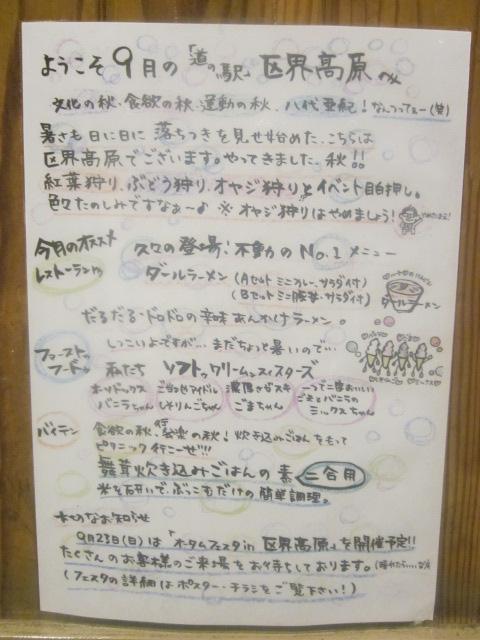 ようこそ9月の「道の駅」区界高原へ
文化の秋、食欲の秋、運動の秋、八代亜紀!なんつってぇー(笑)
暑さも日に日に落ちつきを見せ始めた、こちらは
区界高原でございます。やってきました、秋!!
紅葉狩り、ぶどう狩り、オヤジ狩りとイベント目白押し。
色々たのしみですなぁ~♪ ※オヤジ狩りはやめましょう!
今月のオススメ 久々の登場!不動のNo.1メニュー
レストーラン ダールラーメン (Aセット ミニカレー、サラダ付)
(Bセット ミニ豚丼・サラダ付)
ダールラーメン
だるだる・ドロドロの辛味あんかけラーメン。
しつこいよですが…まだちょっと暑いので…
ファースト フード 私たち ソフトックリームシスターズ
オーソドックス バニラちゃん
ご当地アイドル しそりんごちゃん
濃厚さがスキ ごまちゃん
一つで二度おいしい ごまとバニラの ミックスちゃん
バイテン 食欲の秋、行楽の秋!炊き込みごはんをもって
ピクニック行こーぜ!!!
舞茸炊き込みごはんの素 二合用
米を研いで、ぶっこむだけの簡単調理。
大切なお知らせ
9月23日(日)は「オータムフェスタin区界高原」を開催予定!!
たくさんのお客様のご来場をお待ちしております。
(フェスタの詳細はポスター・チラシをご覧下さい!)